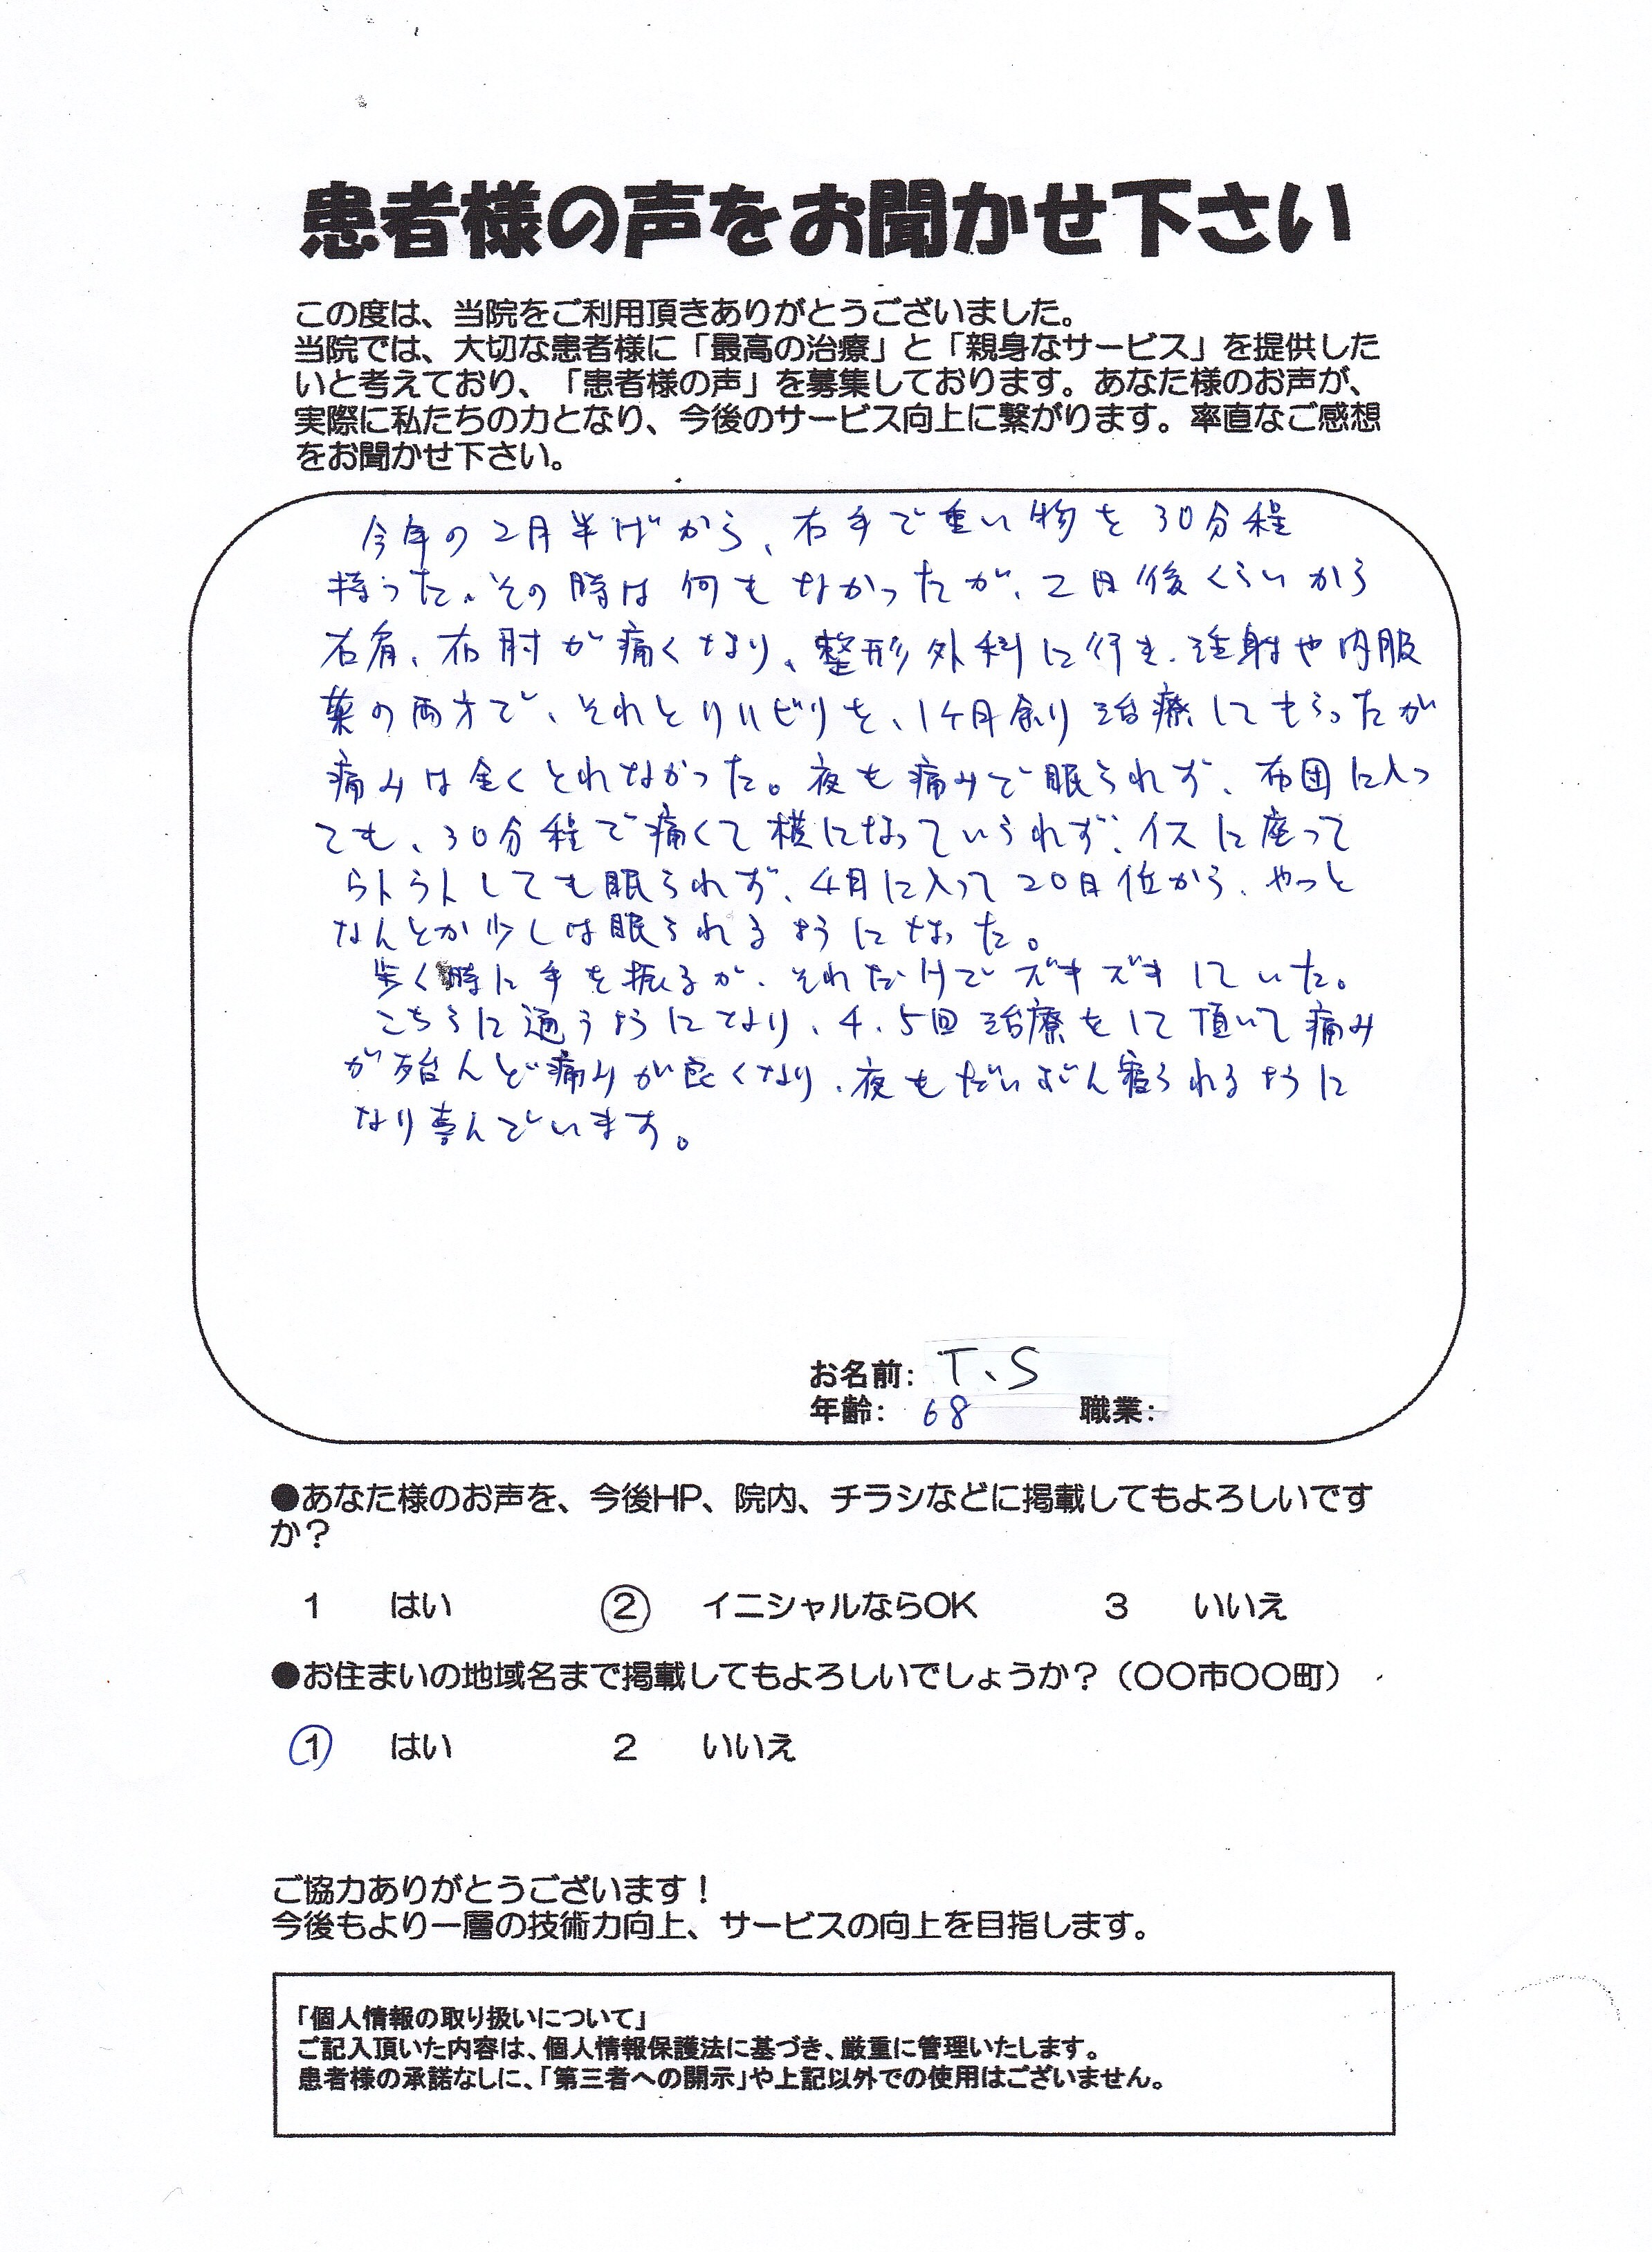 患者様の声をお聞かせ下さい
この度は、当院をご利用頂きありがとうございました。
当院では、大切な患者様に「最高の治療」と「親身なサービス」を提供した
いと考えており、「患者様の声」を募集しております。あなた様のお声が、
実際に私たちの力となり、今後のサービス向上に繋がります。率直なご感想
をお聞かせ下さい。
今年の2月半ばから、右手で重い物を30分程
持った。その時は何もなかったが、2日後くらいから
右肩、右肘が痛くなり、整形外科に行き、注射や内服
薬の両方で、それとリハビリを、1ケ月余り治療してもらったが
痛みは全くとれなかった。夜も痛みで眠られず、布団に入っ
ても、30分程で痛くて横になっていられず、イスに座って
うトうトしても眠られず、4月に入って20日位から、やっと
なんとか少しは眠られるようになった。
歩く時に手を振るが、それだけでズキズキしていた。
こちらに通うようになり、4.5回治療をして頂いて痛み
が殆んど痛みが良くなり、夜もだいぶん寝られるように
なり喜んでいます。
お名前: T、S
年齢: 68 職業:
●あなた様のお声を、今後HP、院内、チラシなどに掲載してもよろしいです
か？
1 はい ② イニシャルならOK 3 いいえ
●お住まいの地域名まで掲載してもよろしいでしょうか？（〇〇市〇〇町）
① はい 2 いいえ
ご協力ありがとうございます！
今後もより一層の技術力向上、サービスの向上を目指します。
「個人情報の取り扱いについて」
ご記入頂いた内容は、個人情報保護法に基づき、厳重に管理いたします。
患者様の承諾なしに、「第三者への開示」や上記以外での使用はございません。